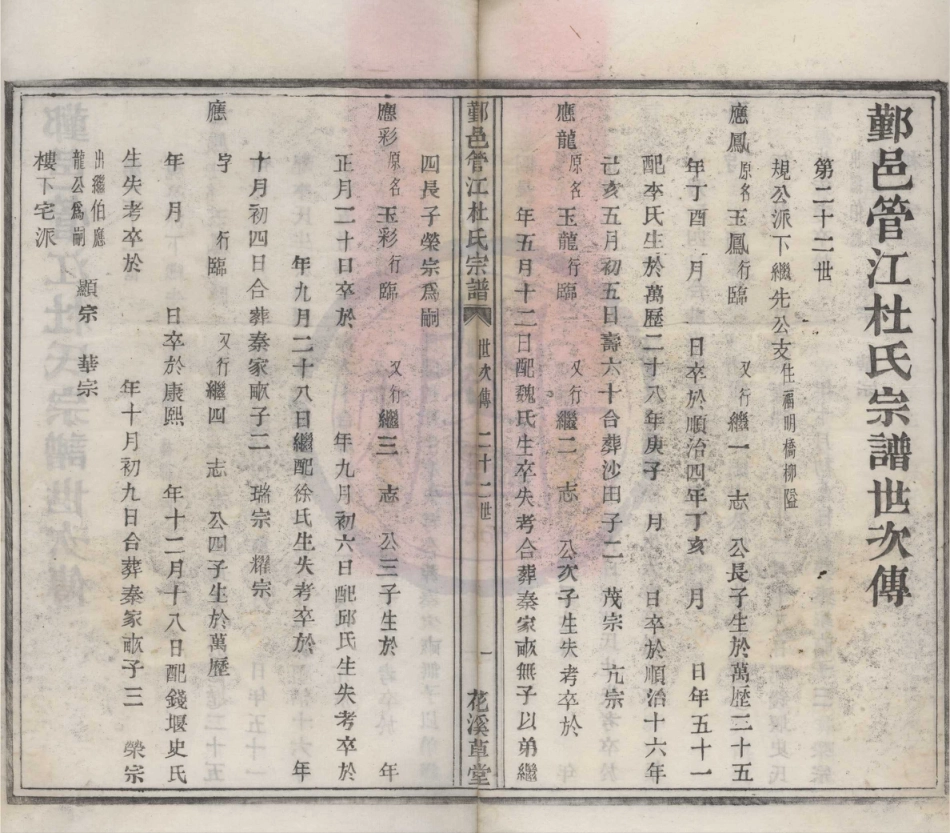 鄞邑管江杜氏宗譜世次傳
第二十二世
規公派下繼先公支住福明橋柳隘
應鳳原名玉鳳行臨 又行繼一 志 公長子生於萬歷三十五
年丁酉 月 日卒於順治四年丁亥 月 日年五十一
配李氏生於萬歷二十八年庚子 月 日卒於順治十六年
己亥五月初五日壽六十合葬沙田子二 茂宗 亢宗
應龍原名玉龍行臨 又行繼二 志 公次子生失考卒於
年五月十二日配魏氏生卒失考合葬秦家畝無子以弟繼
鄞邑管江杜氏宗譜 世次傳 二十二世 一 花溪草堂
四長子榮宗為嗣
應彩原名玉彩行臨 又行繼三 志 公三子生於 年
正月二十日卒於 年九月初六日配邱氏生失考卒於
年九月二十八日繼配徐氏生失考卒於 年
十月初四日合葬秦家畝子二 瑞宗 耀宗
應 字 行臨 又行繼四 志 公四子生於萬歷
年 月 日卒於康熙 年十二月十八日配錢堰史氏
生失考卒於 年十月初九日合葬秦家畝子三 榮宗
出繼伯應龍公為嗣 顯宗 華宗
樓下宅派